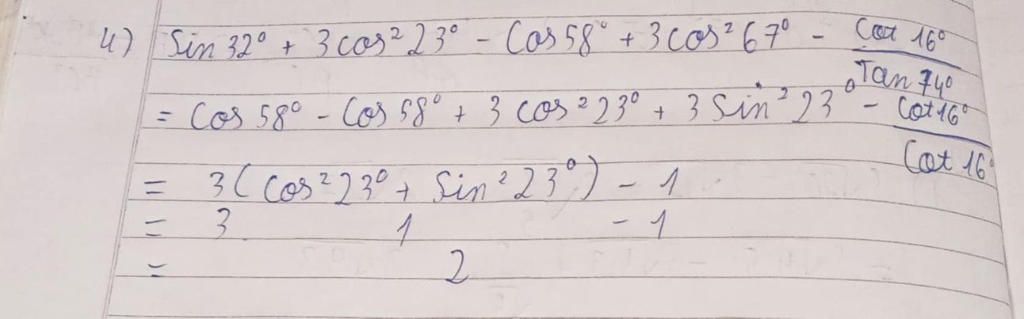 4) Sin 32° + 3 cos² 23° - Cos 58° + 3 cos² 67° - Cot 16° / Tan 74°
= Cos 58° - Cos 58° + 3 cos² 23° + 3 Sin² 23° - Cot 16° / Cot 16°
= 3 ( Cos² 23° + Sin² 23° ) - 1
= 3 1 - 1
= 2